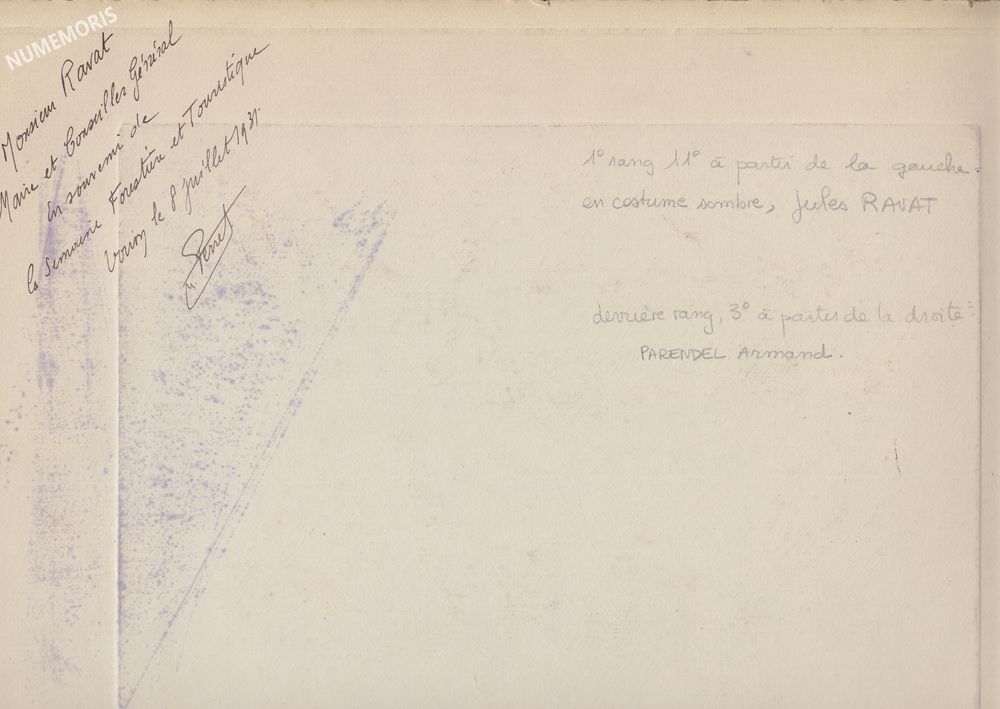 NUMEMORIS
Monsieur Ravat
Maire et Conseiller Général
En souvenir de
la Semaine Forestière et Touristique
Voiron le 8 juillet 1931.
1° rang 11° à partir de la gauche.
en costume sombre, Jules RAVAT
derrière rang, 3° à partir de la droite :
PARENDEL Armand.